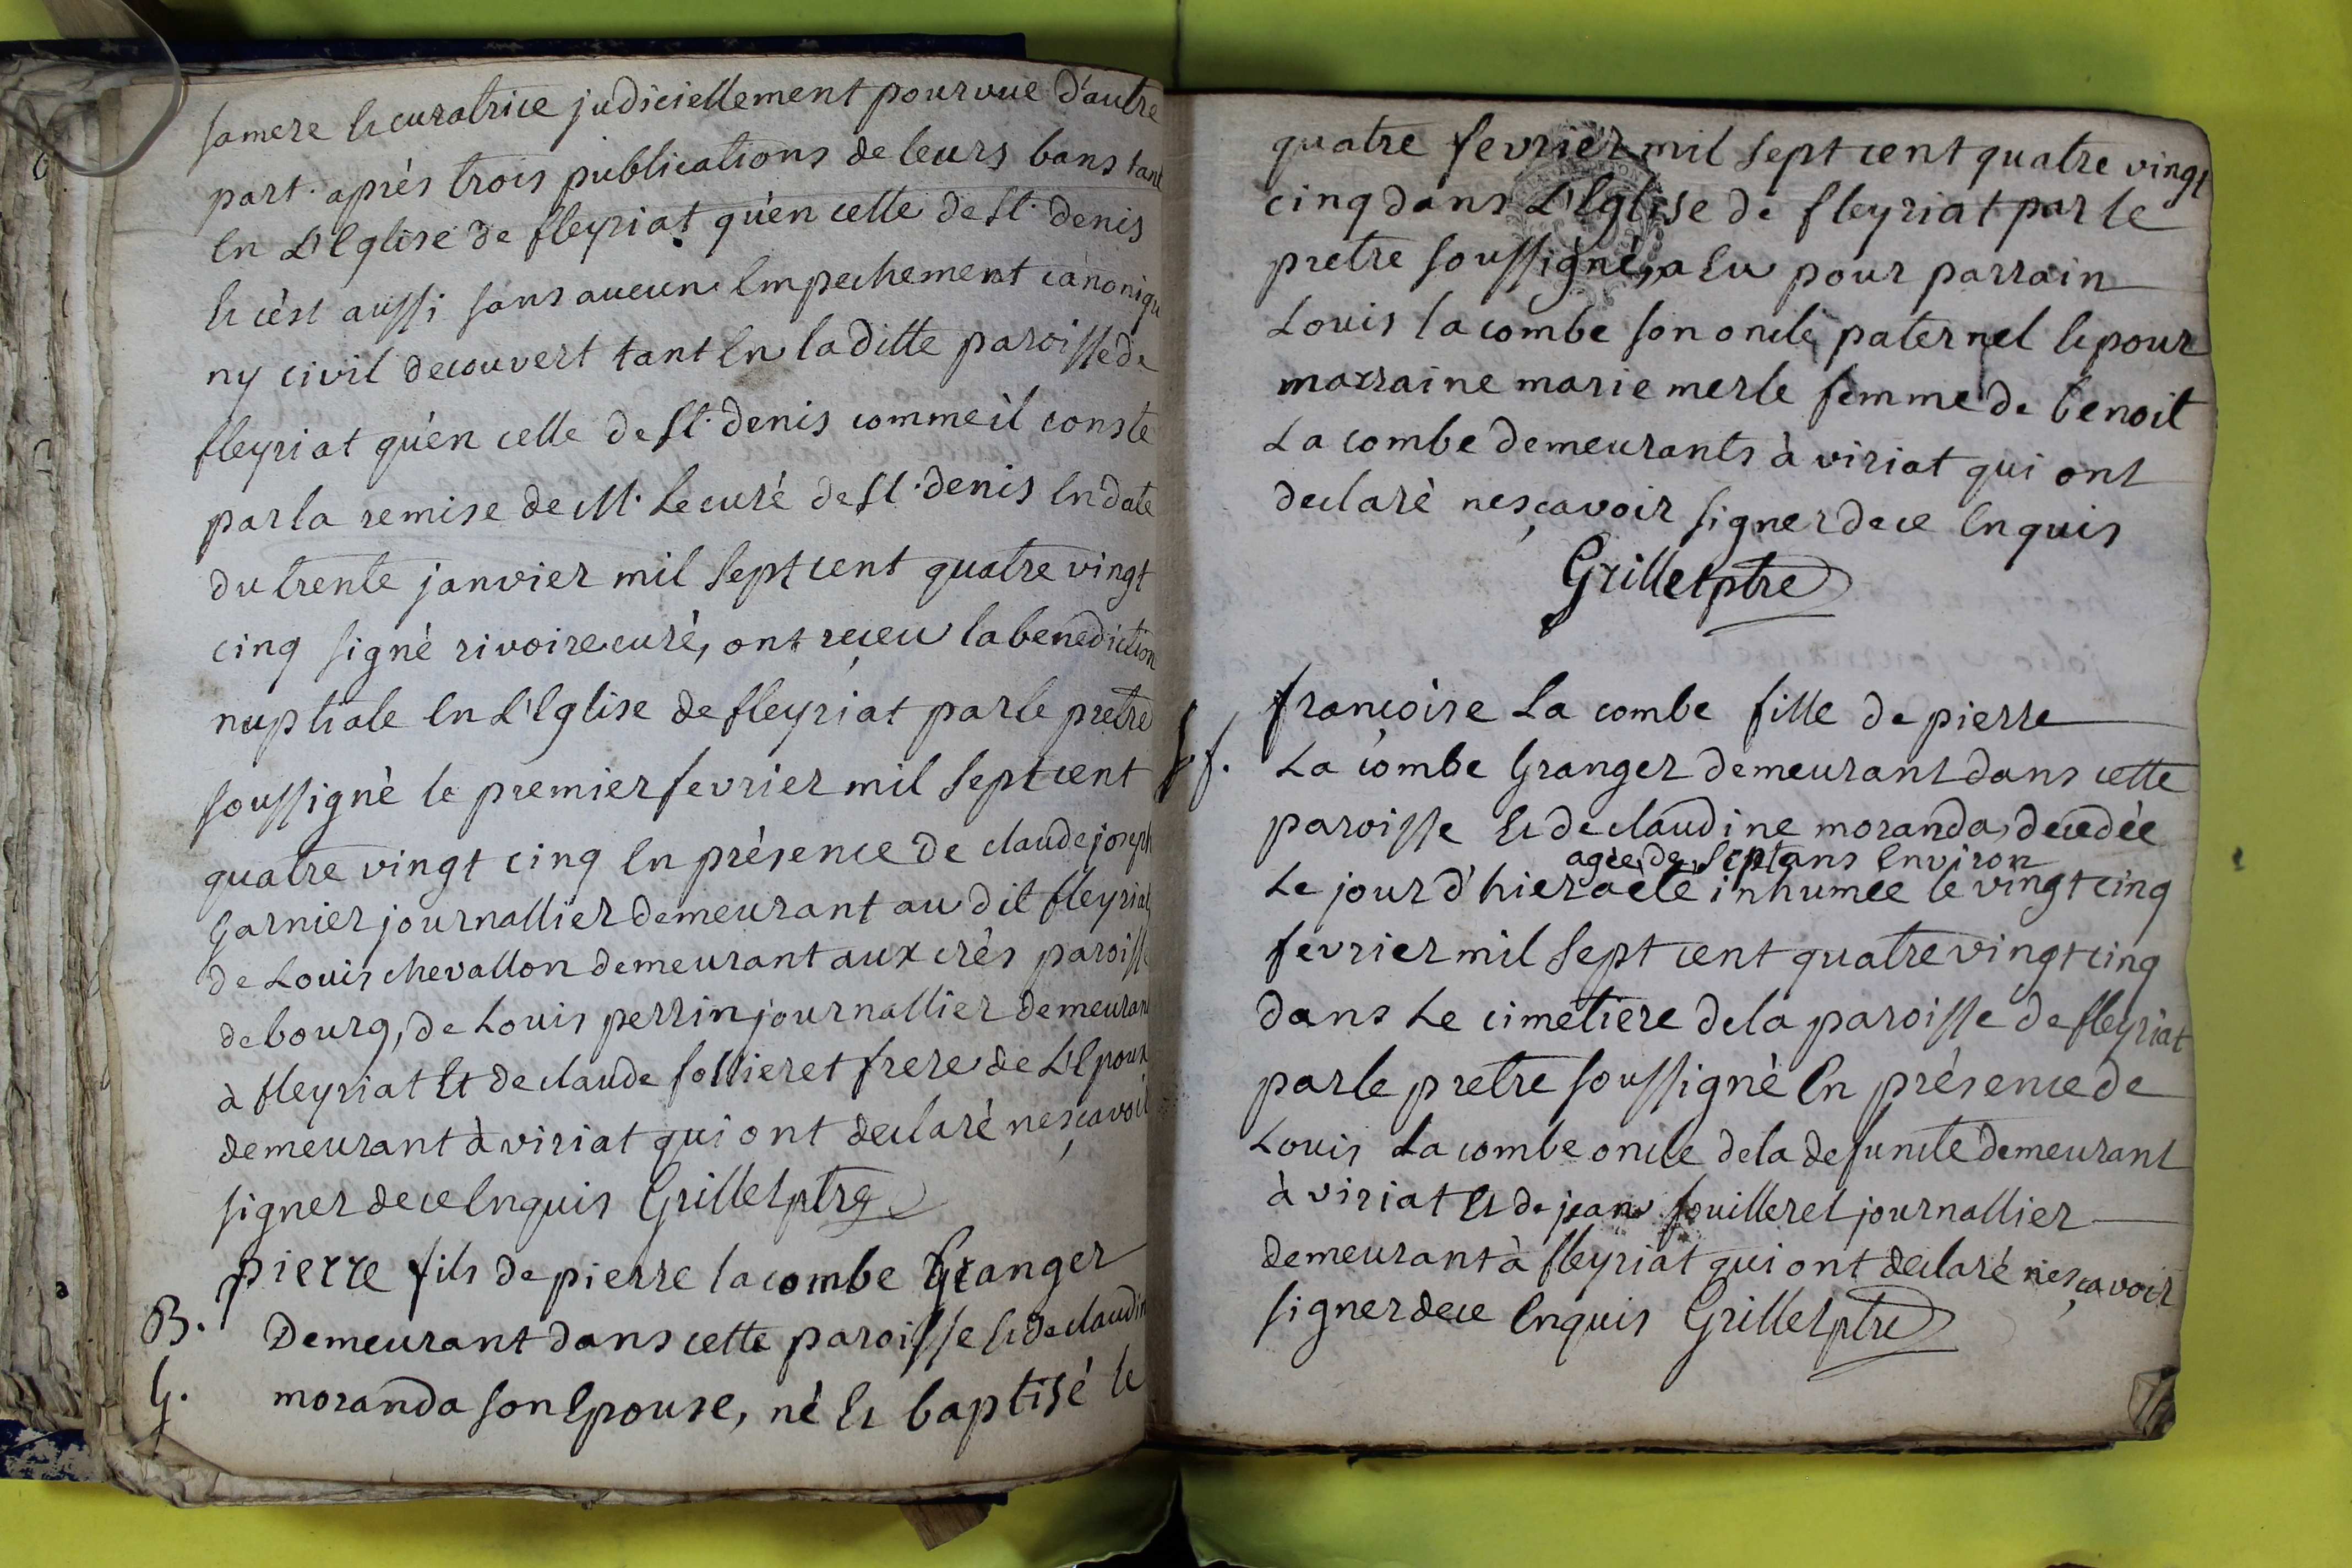 samere et curatrice judiciellement pourvue d'autre
part. après trois publications de leurs bans tant
en L'Eglise de fleyriat qu'en celle de St. denis
et cèst aussi sans aucun Empechement canoniqu
ny civil decouvert tant En laditte paroisse de
fleyriat qu'en celle de St. denis comme il conste
par la remise de M. Le curé de St. denis En date
du trente janvier mil sept cent quatre vingt
cinq signé rivoire curé, ont reçeu la benediction
nuptiale En L'Eglise de fleyriat par le pretre
soussigné le premier fevrier mil sept cent
quatre vingt cinq En présence de claude joseph
Garnier journallier demeurant au dit fleyriat,
de Louis chevallon demeurant aux crès paroisse
de bourg, de Louis perrin journallier demeurant
à fleyriat Et de claude follieret frere de L'Epoux
demeurant à viriat qui ont declaré ne sçavoir
signer de ce Enquis Grillet ptre
pierre fils de pierre lacombe Granger
B. Demeurant dans cette paroisse et de claudin
G. moranda son Epouse, né et baptisé le
quatre fevrier mil sept cent quatre vingt
cinq dans L'Eglise de fleyriat par le
pretre soussigné, a Eu pour parrain
Louis lacombe son oncle paternel et pour
marraine marie merle femme de benoit
La combe demeurants à viriat qui ont
declaré ne sçavoir signer de ce Enquis
Grillet ptre
françoise La combe fille de pierre
f. La combe Granger demeurant dans cette
paroisse et de claudine moranda, decedée
agée de sept ans Environ
Le jour d'hier a èté inhumée le vingt cinq
fevrier mil sept cent quatre vingt cinq
dans Le cimetiere de la paroisse de fleyriat
par le pretre soussigné En présence de
Louis La combe oncle de la defuncte demeurant
à viriat et de jean fouilleret journallier
demeurant à fleyriat qui ont declaré ne sçavoir
signer de ce Enquis Grillet ptre